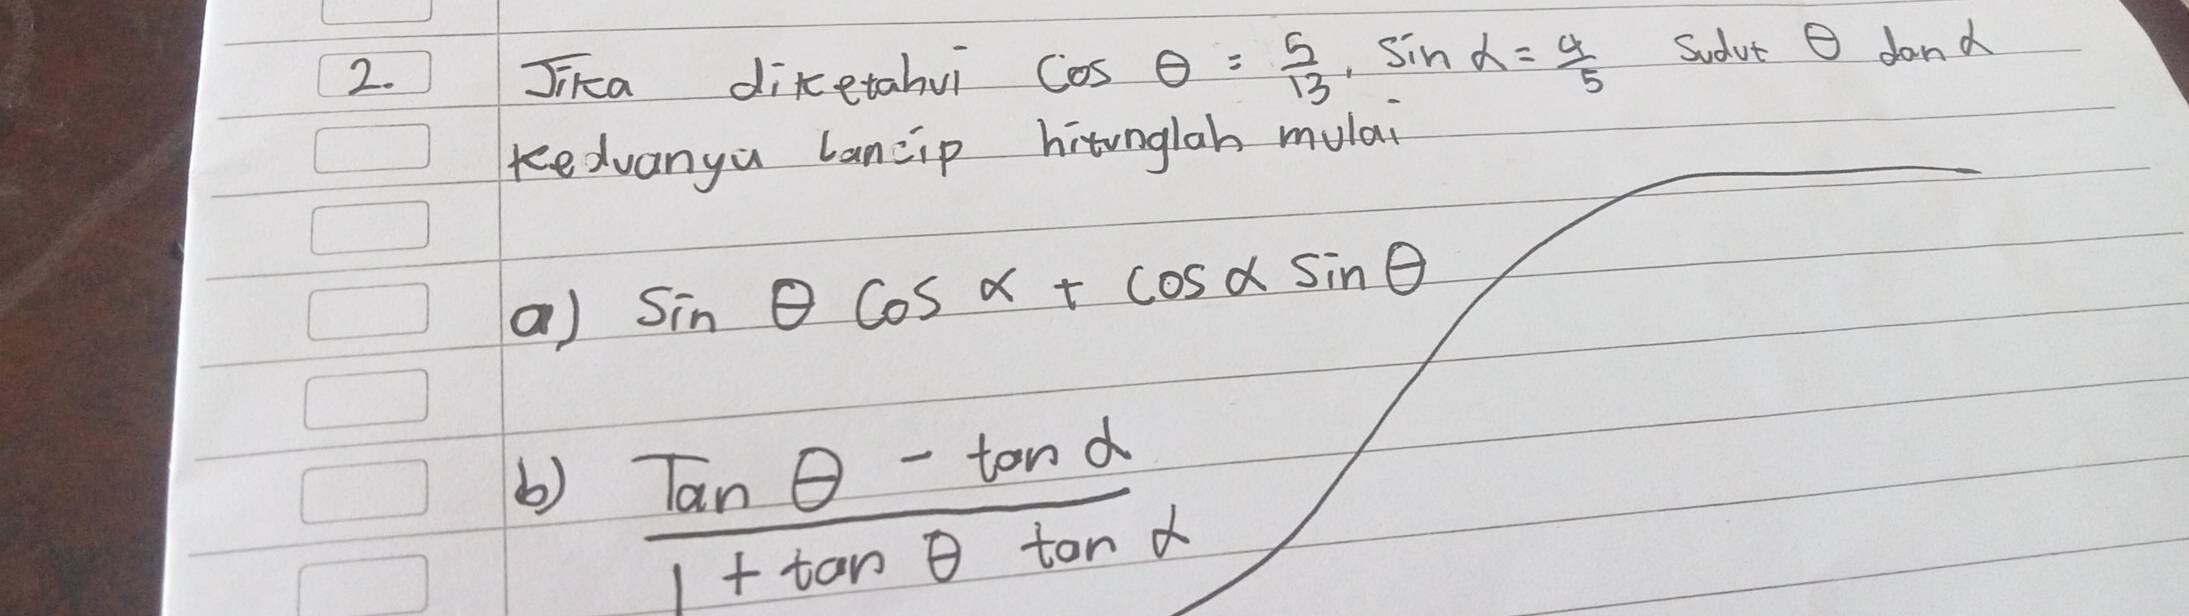 2. Jika diketahui Cos θ = 5/13, Sin α = 4/5 Sudut θ dan α
Keduanya Lancip hitunglah mulai
a) Sin θ Cos α + Cos α Sin θ
b) Tan θ - tan α
1 + tan θ tan α